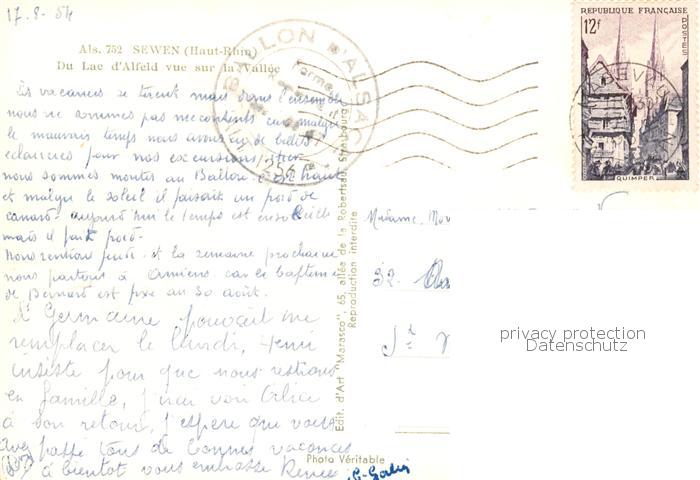 17-8-54
Als. 752 SEWEN (Haut-Rhin)
Du Lac d'Alfeld vue sur la Vallée
BALLON D'ALSACE
Ferme
1256 m
RÉPUBLIQUE FRANÇAISE
12f
POSTES
QUIMPER
Les vacances se tirent mais dans l'ensemble
nous ne sommes pas mécontents car malgré
le mauvais temps nous avons eu de belles
éclaircies pour nos excursions. Hier
nous sommes montés au Ballon c'est haut
et malgré le soleil il faisait un froid de
canard. aujourd'hui le temps est ensoleillé
mais il fait froid.
Nous rentrons et la semaine prochaine
nous partons à Amiens car le baptême
de Bernard est fixé au 30 août.
Si Germaine pouvait me
remplacer le lundi, Henri
insiste pour que nous restions
en famille, j'irai voir
à son retour, j'espère que vous
avez passé tous de bonnes vacances
à bientôt vous embrasse Renée
Edit. d'Art "Marasco", 65, allée de la Robertsau, Strasbourg
Reproduction interdite
Photo Véritable
Madame
32
privacy protection
Datenschutz